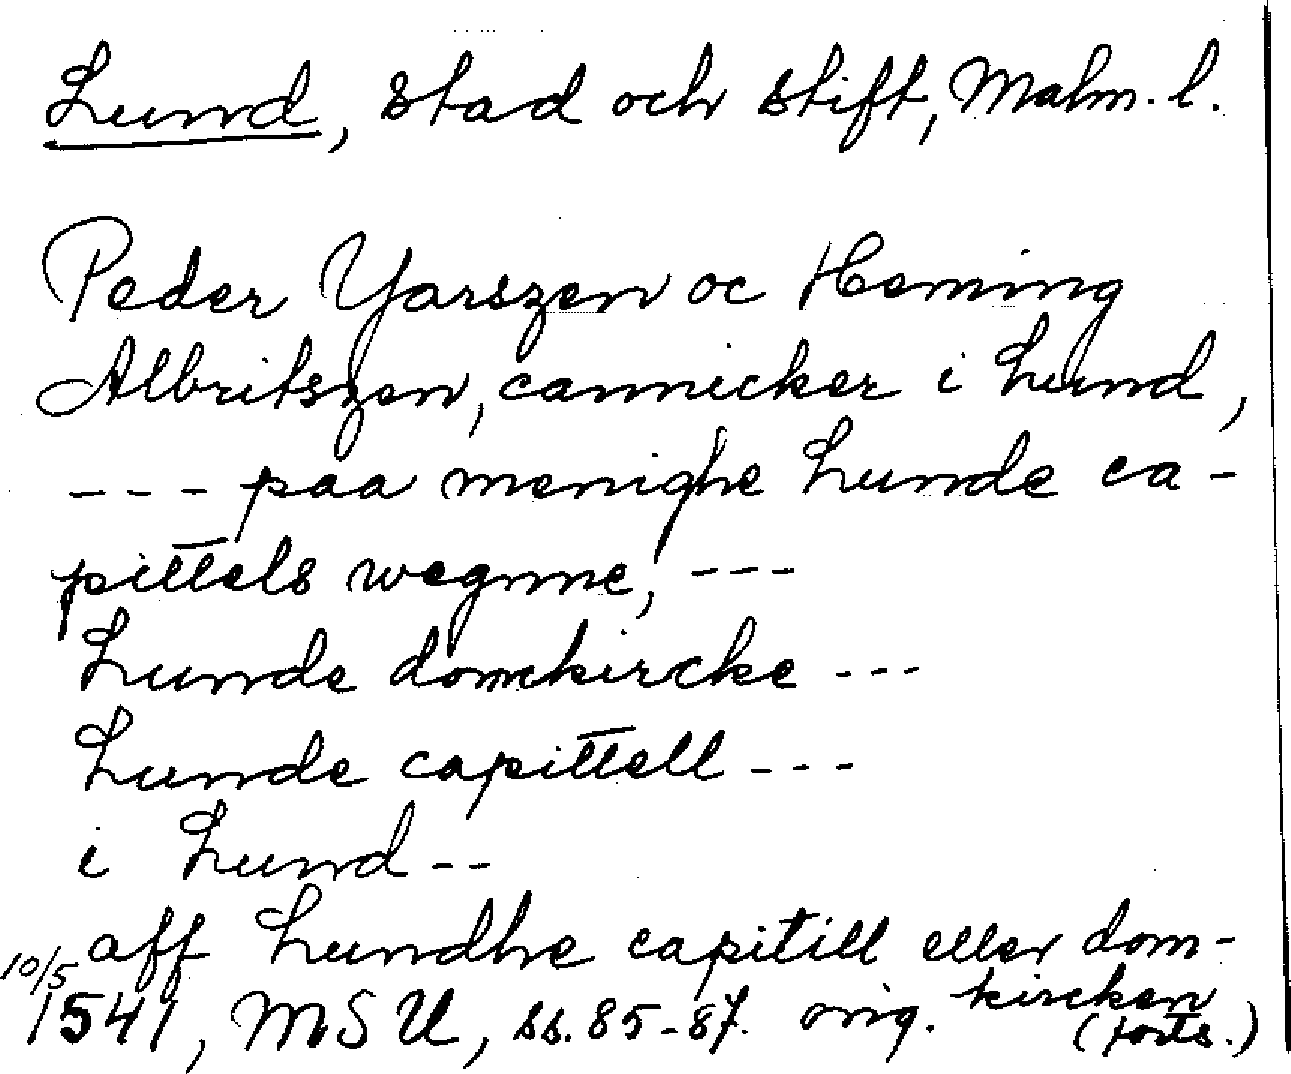 Lund, stad och stift, Malm. l.
Peder Yarszen oc Heming
Albritszen, cannicker i Lund,
--- paa menighe Lunde ca-
pittels wegnne, ---
Lunde domkircke ---
Lunde capittell ---
i Lund --
aff Lundhe capitill eller dom-
kircken
10/5 1541, MSU, ss. 85-87. orig. (forts.)